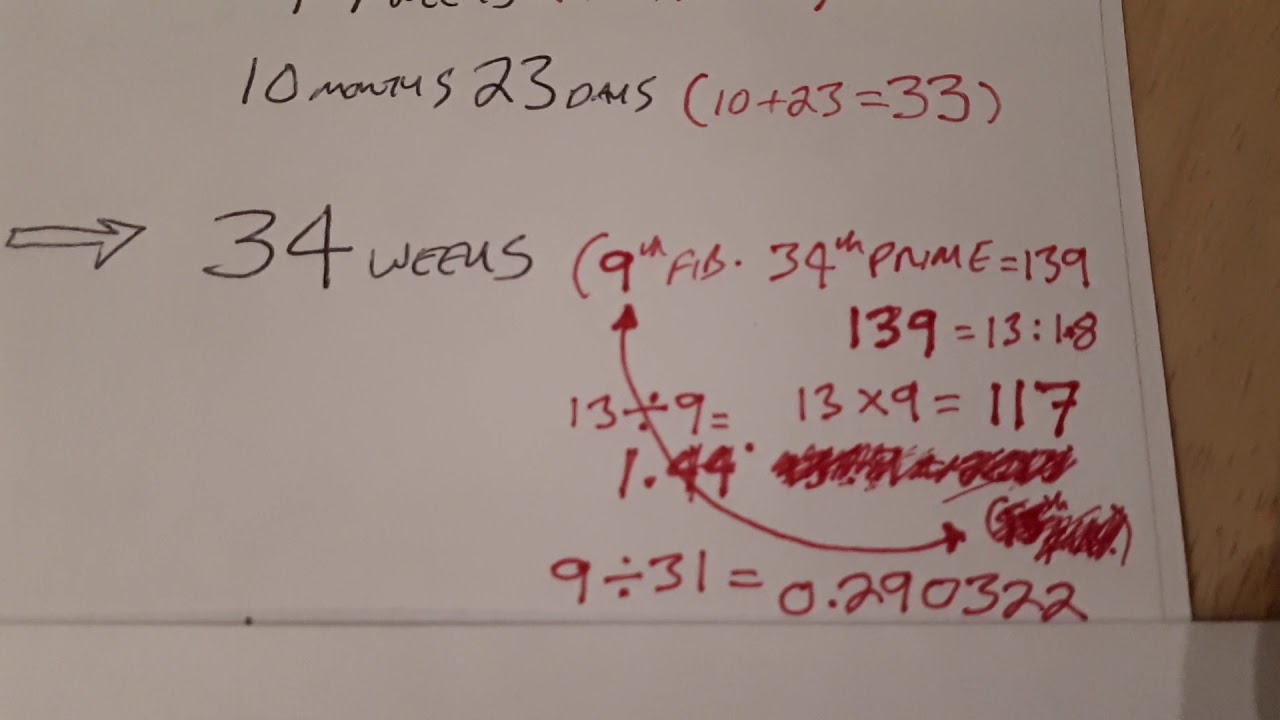 WEEKS
10 MONTHS 23 DAYS (10+23=33)
⇒ 34 WEEKS (9th FIB. 34th PRIME=139
139 = 13:1.8
13÷9= 13×9= 117
1.44
9÷31 = 0.290322